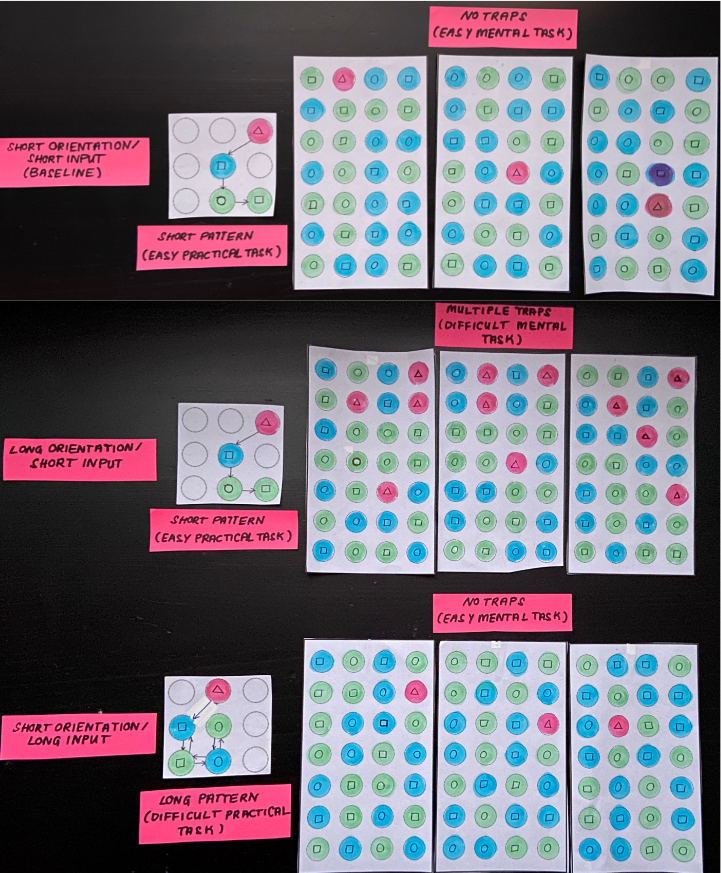 NO TRAPS
(EASY MENTAL TASK)
SHORT ORIENTATION/
SHORT INPUT
(BASELINE)
SHORT PATTERN
(EASY PRACTICAL TASK)
MULTIPLE TRAPS
(DIFFICULT MENTAL
TASK)
LONG ORIENTATION/
SHORT INPUT
SHORT PATTERN
(EASY PRACTICAL TASK)
NO TRAPS
(EASY MENTAL TASK)
SHORT ORIENTATION/
LONG INPUT
LONG PATTERN
(DIFFICULT PRACTICAL
TASK)